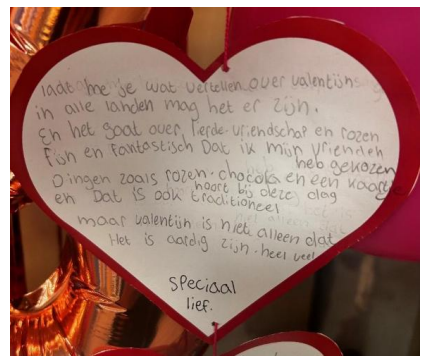 laat me je wat vertellen over valentijn
in alle landen mag het er zijn.
En het gaat over, lierde-vriendschap en rozen
Fijn en Fantastisch Dat ik mijn vrienden
heb gekozen
Dingen zoals rozen-chocola en een kaartje
hoort bij deze dag
en Dat is ook traditioneel
maar valentijn is niet alleen dat
Het is aardig zijn-heel veel
speciaal
lief.